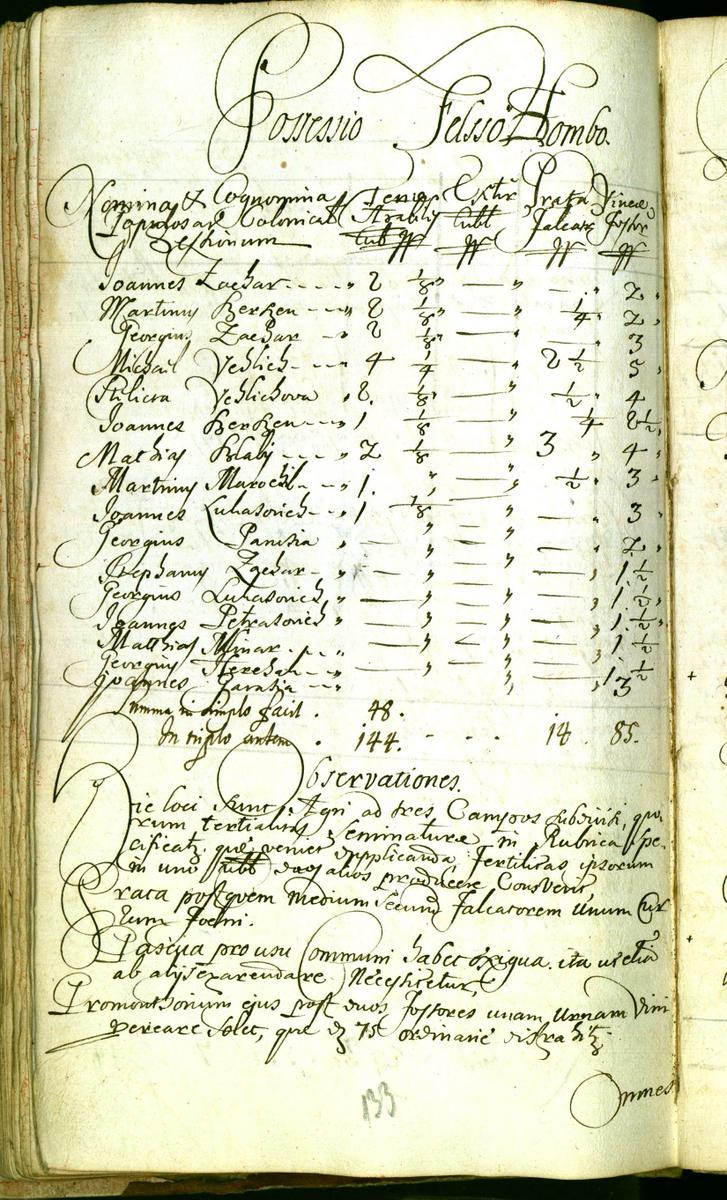 Possessio Felssö Dombo.
Nomina et Cognomina Terrae Extir Prata Vineae
Populosar Colonical Arabiles cubl Falcat Fossor
Sessionum cub
Joannes Zachar - - - - " 2 1/8 " — " — " 2 "
Martinus Kerken - - - " 2 1/8 " — " 1/4 " 2 "
Georgius Zachar - " 2 1/8 " — " — " 3
Michael Vehlich - - - " 4 1/4 — " 2 1/2 " 5 "
Vehlichova " 2. 1/8 — " 1/2 " 4
Joannes Kerken - - " 1 1/8 — " 1/4 2 1/2 "
Mathias Blasy - - - " 2 1/8 — " 3 " 4 "
Martinus - - " 1. " — " 1/2 " 3 "
Joannes Luhasovich - " 1 1/8 — " — " 3 "
Georgius Panisia " — " — " — " 2 "
Stephanus Zachar - - " — " — " — " 1 1/2
Georgius Luhasovich " — " — " — " 1 1/2 "
Joannes Petrasovich " — " — " — " 1 1/2 "
Matthias Mlinar - " — " — " — " 1 1/2
Georgius - " — " — " — " 1 1/2
Joannes - - " " " 3
Summa in simplo facit . 48.
In triplo autem . 144. - - - 14 85.
Observationes.
Hic loci sunt Agri ad tres Campos subdivisi, quo
rum tertialitas Seminaturae in Rubrica spe
cificata, quae veniet dupplicanda Fertilitas ipsorum
in uno cubl duos alios producere Consvevit
Prata post quem medium secund Falcatorem Unum Cur
rum Foeni.
Pascua pro usu Communi habet exigua, ita ut etiam
ab alijs exarendare Necessitetur,
Promonthorium ejus post duos Fossores unam Urnam Vini
solet, que 75 ordinarie distrahitur
Omnes
133